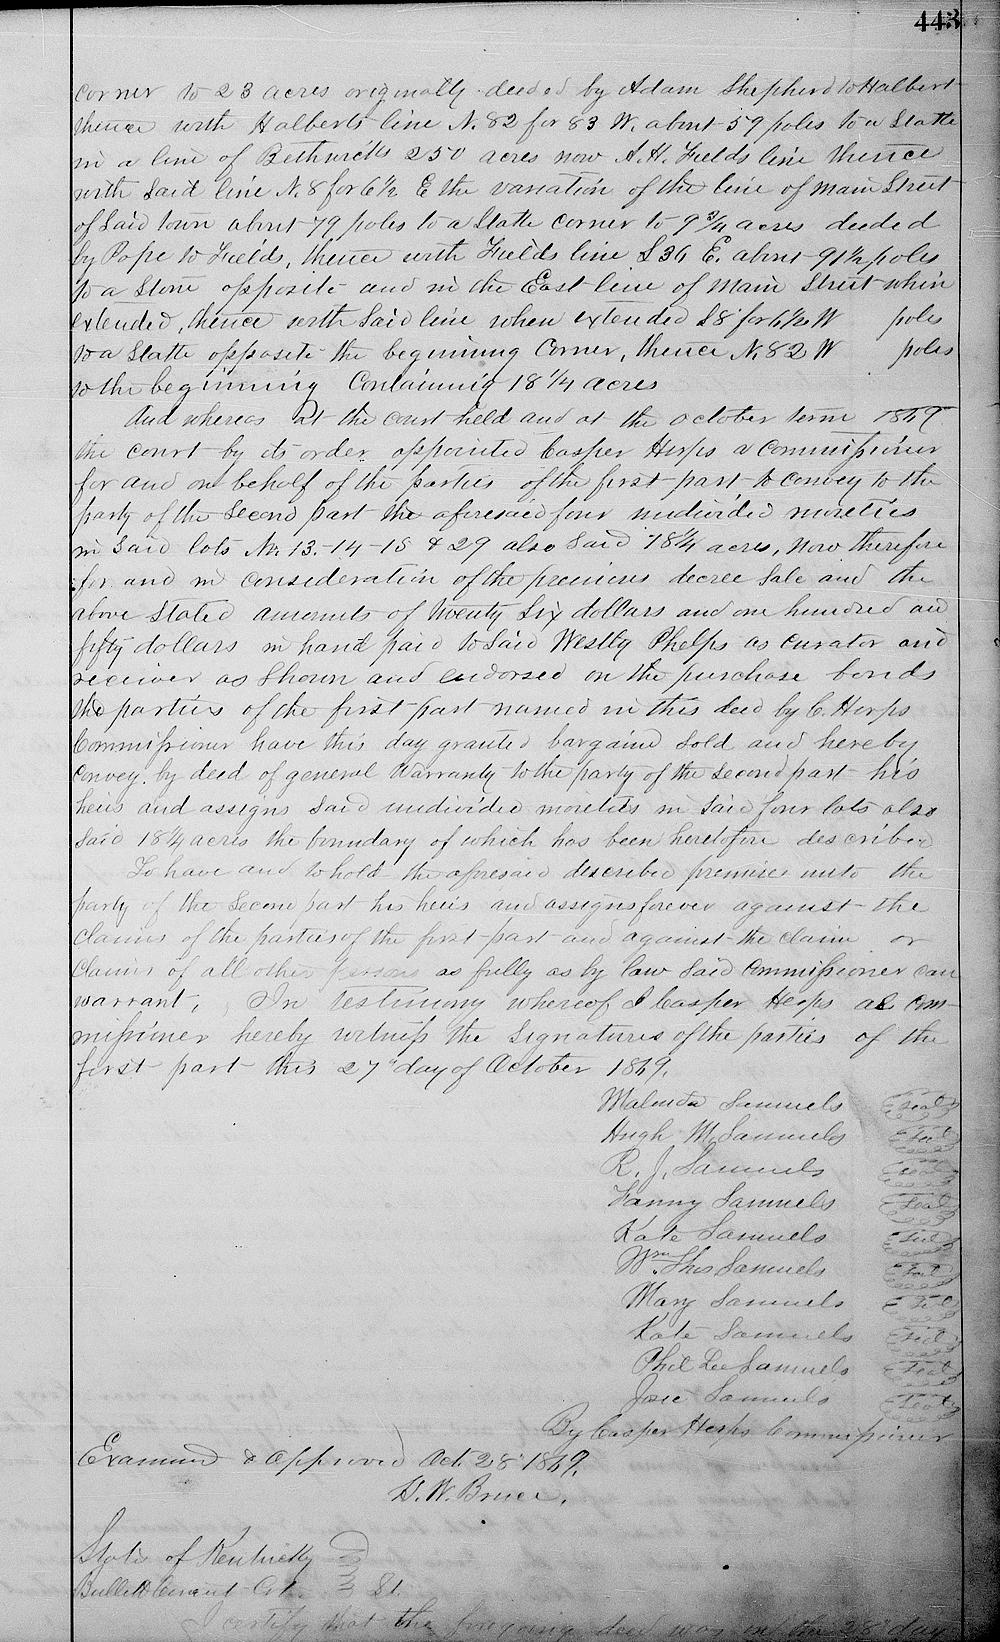 443
corner to 23 acres originally deeded by Adam Shepherd to Halbert
thence with Halberts line N. 82 for 83 W. about 59 poles to a Statte
in a line of 250 acres now A. H. Fields line thence
with Said line N. 8 for 6½ E the variation of the line of Main Street
of Said town about 79 poles to a Statte corner to 9¾ acres deeded
by Pope to Fields, thence with Fields line S 36 E. about 91½ poles
to a Stone opposite and in the East line of Main Street when
extended, thence with Said line when extended S 8 for 6½ W poles
to a Statte opposite the beginning Corner, thence N. 82 W poles
to the beginning Containing 18¼ acres
And whereas at the court held and at the October term 1869
the court by its order appointed Casper Herps a Commissioner
for and on behalf of the parties of the first part to convey to the
party of the Second part the aforesaid four undivided moieties
in Said lots No 13-14-15 & 29 also Said 18¼ acres, Now therefore
for and in consideration of the premises decree Sale and the
above Stated amounts of twenty Six dollars and one hundred and
fifty dollars in hand paid to Said Westly Phelps as curator and
receiver as Shown and endorsed on the purchase bonds
the parties of the first part named in this deed by C. Herps
Commissioner have this day granted bargaind Sold and hereby
convey by deed of general Warranty to the party of the Second part his
heirs and assigns Said undivided moieties in Said four lots also
Said 18¼ acres the boundary of which has been heretofore described
To have and to hold the aforesaid described premises unto the
party of the Second part his heirs and assigns forever against the
claims of the parties of the first part and against the claim or
claims of all other persons as fully as by law Said Commissioner can
warrant, In testimony whereof I Casper Herps as com-
missioner hereby witness the Signatures of the parties of the
first part this 27" day of October 1869.
Malinda Samuels Seal
Hugh M. Samuels Seal
R. J. Samuels Seal
Fanny Samuels Seal
Kate Samuels Seal
Wm. Thos Samuels Seal
Mary Samuels Seal
Kate Samuels Seal
Phil Lee Samuels Seal
Josie Samuels Seal
By Casper Herps Commissioner
Examined & Approved Oct. 28" 1869.
W. Bruce,
State of Kentucky
Bullitt County Ct. St.
I certify that the foregoing deed was on the 28" day